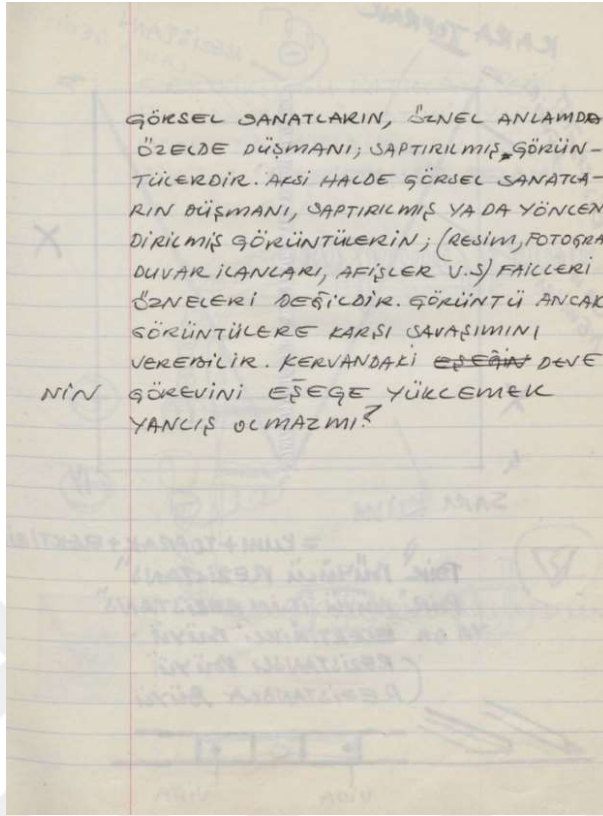 GÖRSEL SANATLARIN, ÖZNEL ANLAMDA
ÖZELDE DÜŞMANI; SAPTIRILMIŞ GÖRÜN-
TÜLERDİR. AKSİ HALDE GÖRSEL SANATLA-
RIN DÜŞMANI, SAPTIRILMIŞ YA DA YÖNLEN
DİRİLMİŞ GÖRÜNTÜLERİN; (RESİM, FOTOGRA
DUVAR İLANLARI, AFİŞLER V.S) FAİLLERİ
ÖZNELERİ DEĞİLDİR. GÖRÜNTÜ ANCAK
GÖRÜNTÜLERE KARŞI SAVAŞIMINI
VEREBİLİR. KERVANDAKİ EŞEĞİN DEVE
NİN GÖREVİNİ EŞEĞE YÜKLEMEK
YANLIŞ OLMAZMI?